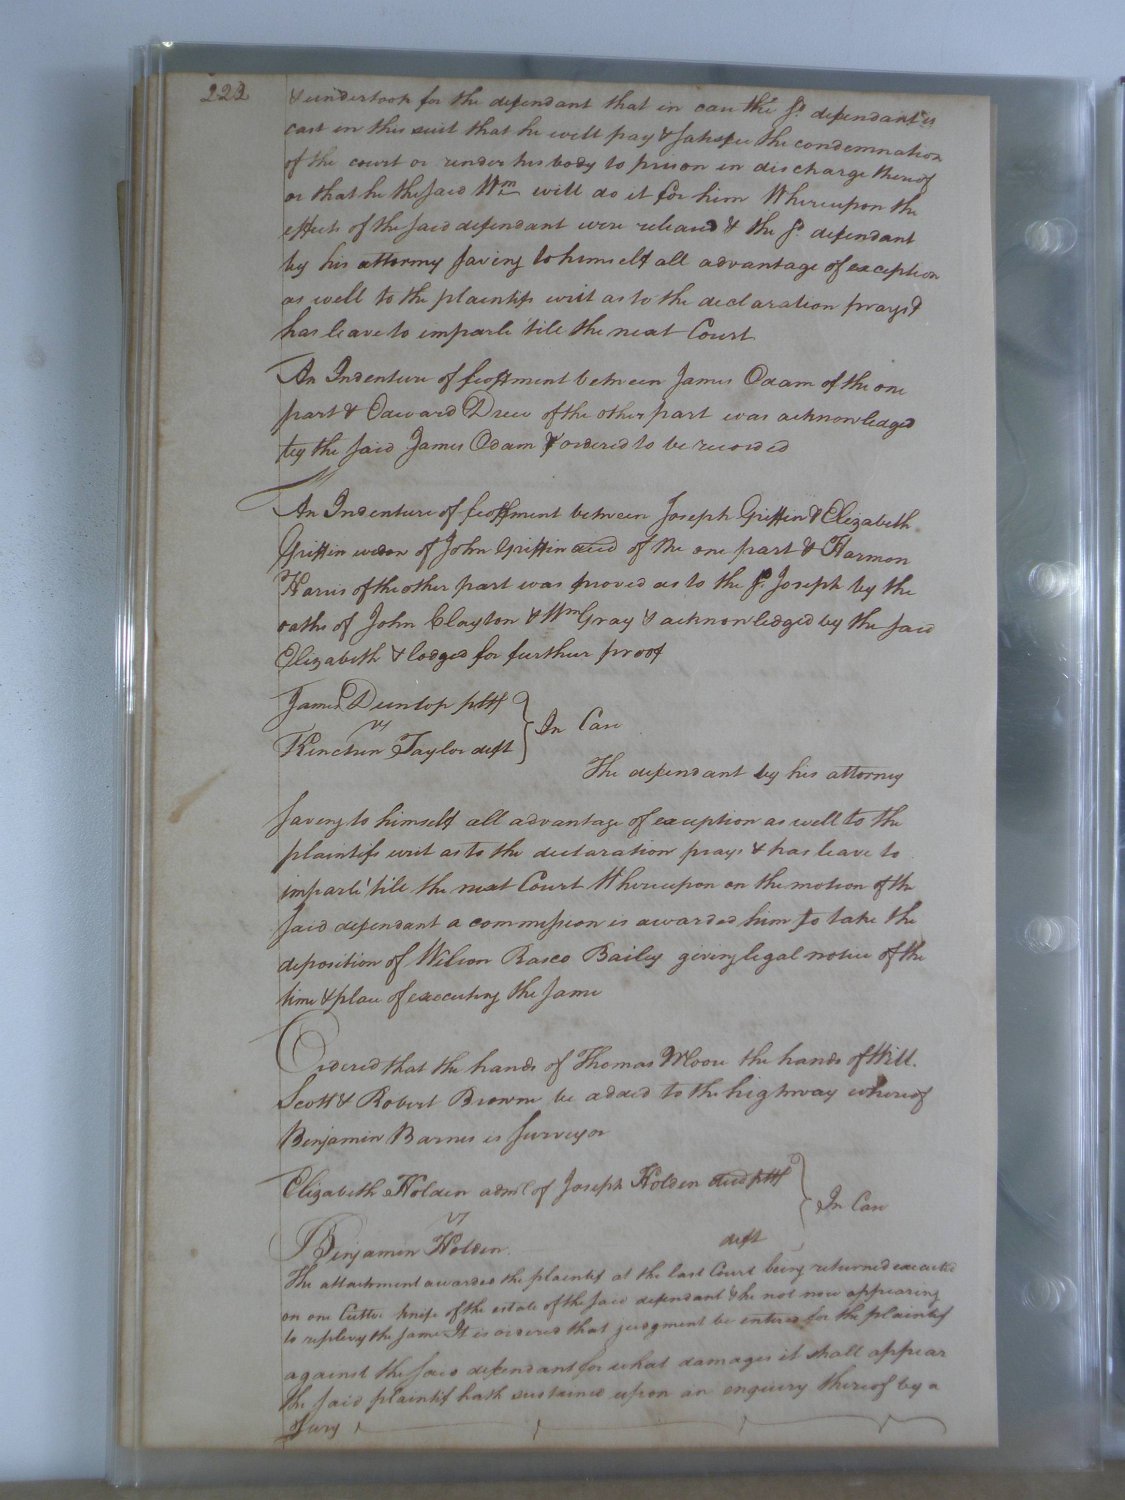 222
& undertook for the defendant that in case the sd. defendant is
cast in this suit that he will pay & satisfie the condemnation
of the court or render his body to prison in discharge thereof
or that he the said Wm will do it for him Whereupon the
effects of the said defendant were released & the sd. defendant
by his attorney saving to himself all advantage of exception
as well to the plaintifs writ as to the declaration prays &
has leave to imparle 'till the next Court
An Indenture of feoffment between James Odam of the one
part & Edward Drew of the other part was acknowledged
by the said James Odam & ordered to be recorded
An Indenture of feoffment between Joseph Griffin & Elizabeth
Griffin widow of John Griffin decd of the one part & Harmon
Harris of the other part was proved as to the sd. Joseph by the
oaths of John Clayton & Wm Gray & acknowledged by the said
Elizabeth & lodged for further proof
James Dunlop pltf
vs
In Case
Kinchin Taylor deft
The defendant by his attorney
saving to himself all advantage of exception as well to the
plaintifs writ as to the declaration prays & has leave to
imparle 'till the next Court Whereupon on the motion of the
said defendant a commission is awarded him to take the
deposition of Wilson Rasco Bailey giving legal notice of the
time & place of executing the same
Ordered that the hands of Thomas Moore the hands of Will.
Scott & Robert Browne be added to the highway whereof
Benjamin Barnes is surveyor
Elizabeth Holden adm of Joseph Holden decd pltf
vs
In Case
Benjamin Holden deft
The attachment awarded the plaintif at the last Court being returned executed
on one knife of the estate of the said defendant & he not now appearing
to replevy the same It is ordered that judgment be entered for the plaintif
against the said defendant for what damages it shall appear
the said plaintif hath sustained upon an enquiry thereof by a
Jury